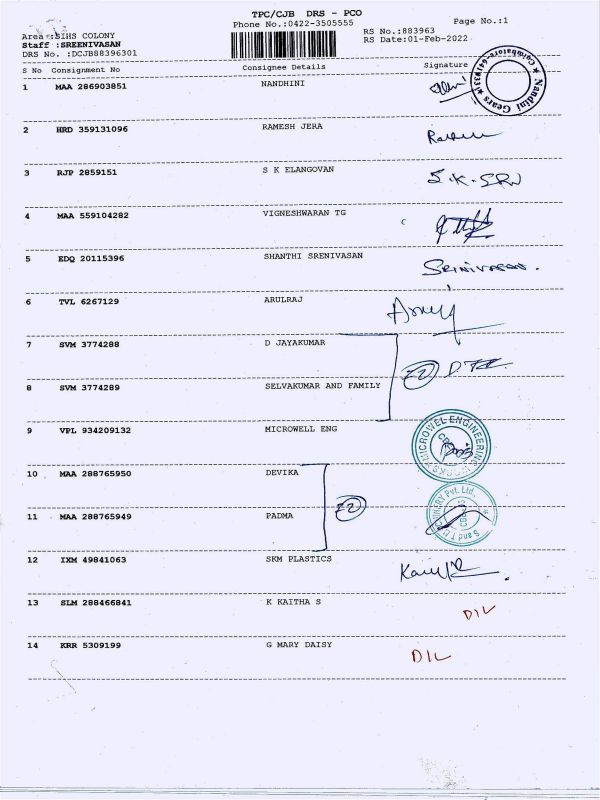 TPC/CJB DRS - PCO
Phone No.:0422-3505555
Page No.:1
Area :SIHS COLONY
Staff :SREENIVASAN
DRS No. :DCJB88396301
RS No.:883963
RS Date:01-Feb-2022
S No Consignment No Consignee Details Signature
1 MAA 286903851 NANDHINI
Nandini Gears * Coimbatore-641033 *
2 HRD 359131096 RAMESH JERA
3 RJP 2859151 S K ELANGOVAN S.K.SRN
4 MAA 559104282 VIGNESHWARAN TG
5 EDQ 20115396 SHANTHI SRENIVASAN SRINIVASAN.
6 TVL 6267129 ARULRAJ
7 SVM 3774288 D JAYAKUMAR
8 SVM 3774289 SELVAKUMAR AND FAMILY
9 VPL 934209132 MICROWELL ENG
MICROWEL ENGINEERING WORKS
10 MAA 288765950 DEVIKA
11 MAA 288765949 PADMA
Pvt. Ltd.
12 IXM 49841063 SKM PLASTICS
13 SLM 288466841 K KAITHA S DIL
14 KRR 5309199 G MARY DAISY DIL